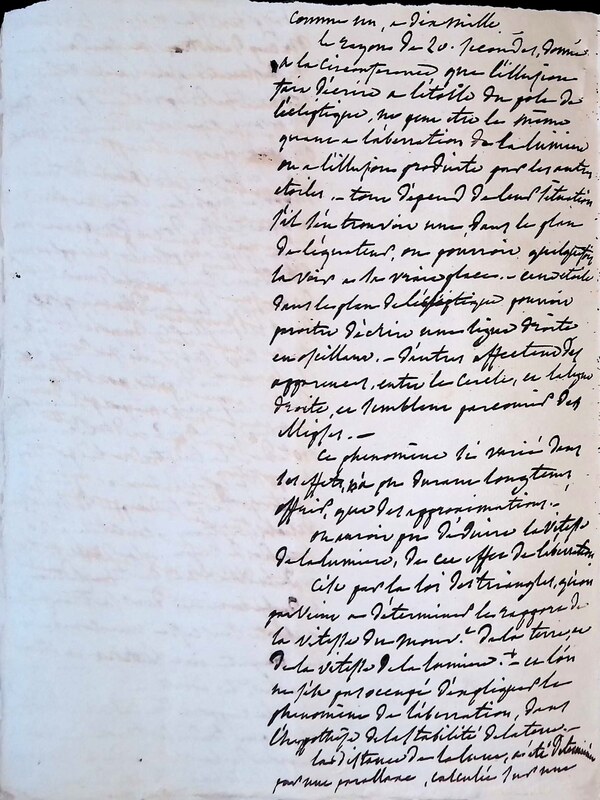 comme un, a dix mille.
le rayon de 20. secondes, donné
a la circonference que l'illusion
fait décrire a l'étoile du pole de
l'écliptique, ne peut etre le même
quant a l'aberration de la lumiere
ou a l'illusion produite par les autres
etoiles. - tout dépend de leur situation
s'il s'en trouvoit une, dans le plan
de l'équateur, on pourroit quelquefois
la voir a sa vraie place. - une étoile
dans le plan de l'écliptique pourroit
paroitre décrire une ligne droite
en oscillant. - d'autres affectent des
apparences, entre le cercle, et la ligne
droite, et semblent parcourir des
ellipses. -
Ce phenomène si varié dans
les effets, n'a pu durant longtems
offrir, que des approximations. -
on auroit pu déduire la vitesse
de la lumiere, de cet effet de l'aberration
C'est par la loi des triangles, qu'on
parvient a déterminer le rapport de
la vitesse du mouv.t de la terre, et
de la vitesse de la lumiere. - et l'on
ne s'est pas occupé d'expliquer le
phenomène de l'aberration, dans
l'hypothèse de la stabilité de la terre. -
la distance de la lune, a été déterminée
par une parallaxe, calculée sur une